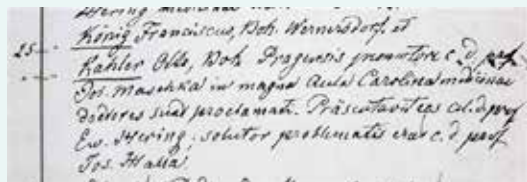 Hering
25 König Franciscus, Boh. Wernersdorf. et
Kahler Otto, Boh. Pragensis promotore c. d. prof
Jos. Maschka in magna Aula Carolina medicinae
doctores sunt proclamati. Präsentavit eos cel. d. prof
Ew. Hering; solutor problematis erat c. d. prof
Jos. Halla.